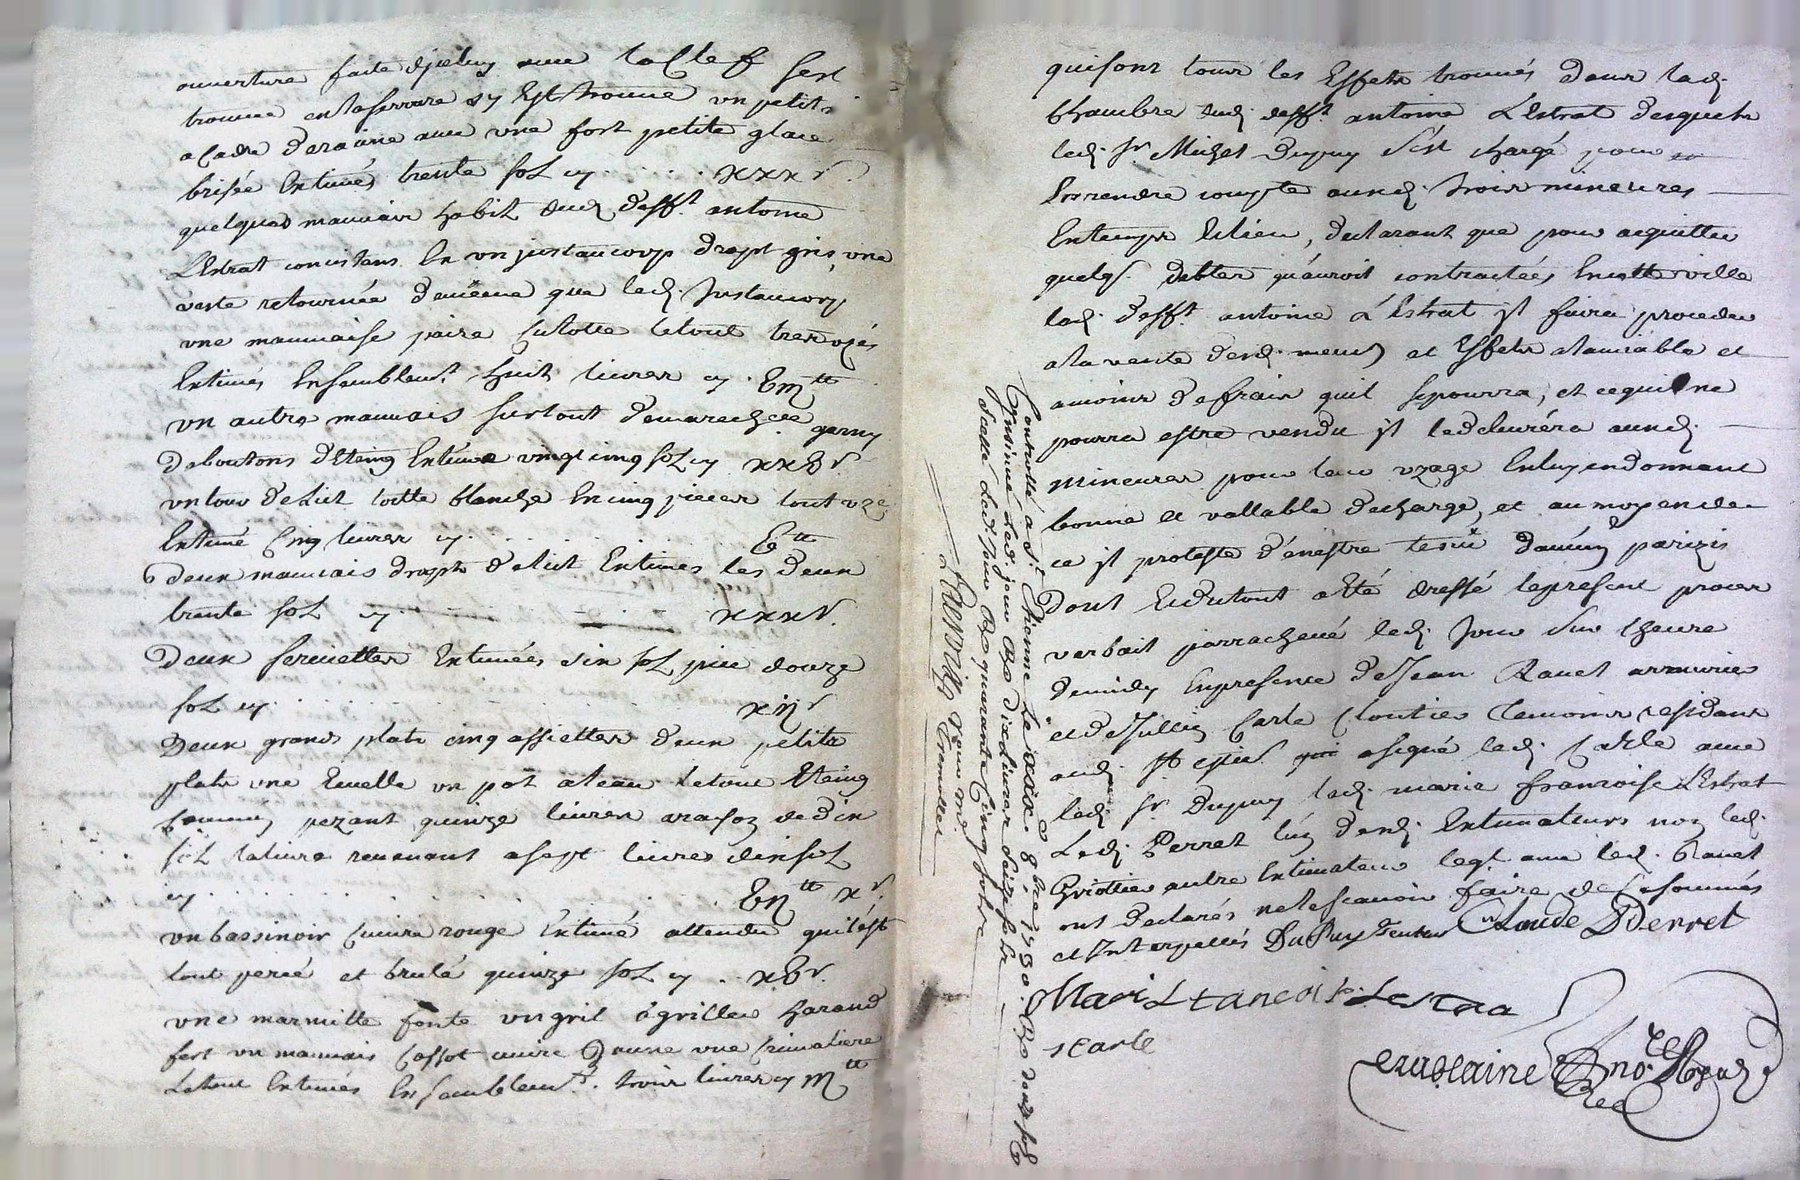 ouverture faite djceluy avec la Clef sest
trouvée en la serrure sy Est trouvé un petit
a Cadre deraine avec une fort petite glace
brisée Estimés trente sols cy . . . . xxx s
quelques mauvais habit dud. deff.t antoine
L'Estrat concistans En un justaucorp drapt gris, une
veste retournée de meme que led. Justaucorp
une mauvaise paire Culotte le tout tres uzés
Estimés Ensemblem.t huit livres cy . 8 tt
un autre mauvais surtout de garny
de boutons d'Etaing Estimé vingt cinq sols cy xx5 s
un tour de Lict toille blanche En cinq pieces tout uzé
Estimé Cinq livres cy . . . . 5 tt
deux mauvais drapts de Lict Estimes les deux
trente sols cy . . . . xxx s.
Deux serviettes Estimées six sols piece douze
sols cy . . . . xij s
Deux grands plats cinq assiettes deux petits
plats une Ecuelle un pot a leau le tout Etaing
commun pezant quinze livres a raison de dix
sols la livre revenant a sept livres dix sols
cy . . . . 7 tt x s
un bassinoir Cuivre rouge Estimé attendu qu'il est
tout percé et brulé quinze sols cy . . x5 s.
une marmitte fonte un gril à griller
fert un mauvais Cassot cuivre Jaune une Crimaliere
Le tout Estimés Ensemblem.t trois livres cy 3 tt
qui sont tous les Effets trouvés dans lad.
Chambre dud. deff.t antoine L'Estrat desquels
led. Sr Michel Dupuy s'est chargé pour
En rendre compte auxd. trois mineures
En temps & lieu, declarant que pour acquitter
quelq.s debtes qu'auroit contractées En cette ville
led. deff.t antoine L'Estrat jl faira proceder
a la vente desd. meub. et Effets a lamiable et
a moins de frais quil se pourra, et ce qui ne
pourra estre vendu jl le delivrera auxd.
mineures pour leur uzage En luy en donnant
bonne et vallable decharge, et au moyen de
ce jl proteste d'en estre tenu
Dont Et du tout a été dressé le present proces
verbail parrachevé led. Jour sur l'heure
de midy En presence de Jean Ravel armurier
et de Jullien Carle Cloutier temoins residans
aud. St Etien. signé led. Carle avec
led. Sr. Dupuy lad. marie francoise L'Estrat
Led. Perret l'un desd. Estimateurs non led.
Griottier autre Estimateur leql. avec led. Ravel
ont declarés ne le scavoir faire de ce sommés
et Interpellés Dupuy tuteur Claude Perret
Mari francoise Lestra
J Carle
Controllé à St. Etienne Le xxix. 8bre 1730. R. douze sols
Insinué Led. jour R. dix livres seize sols
scellé Led. jour R. quarante Cinq sols
pour mr. Tremollet